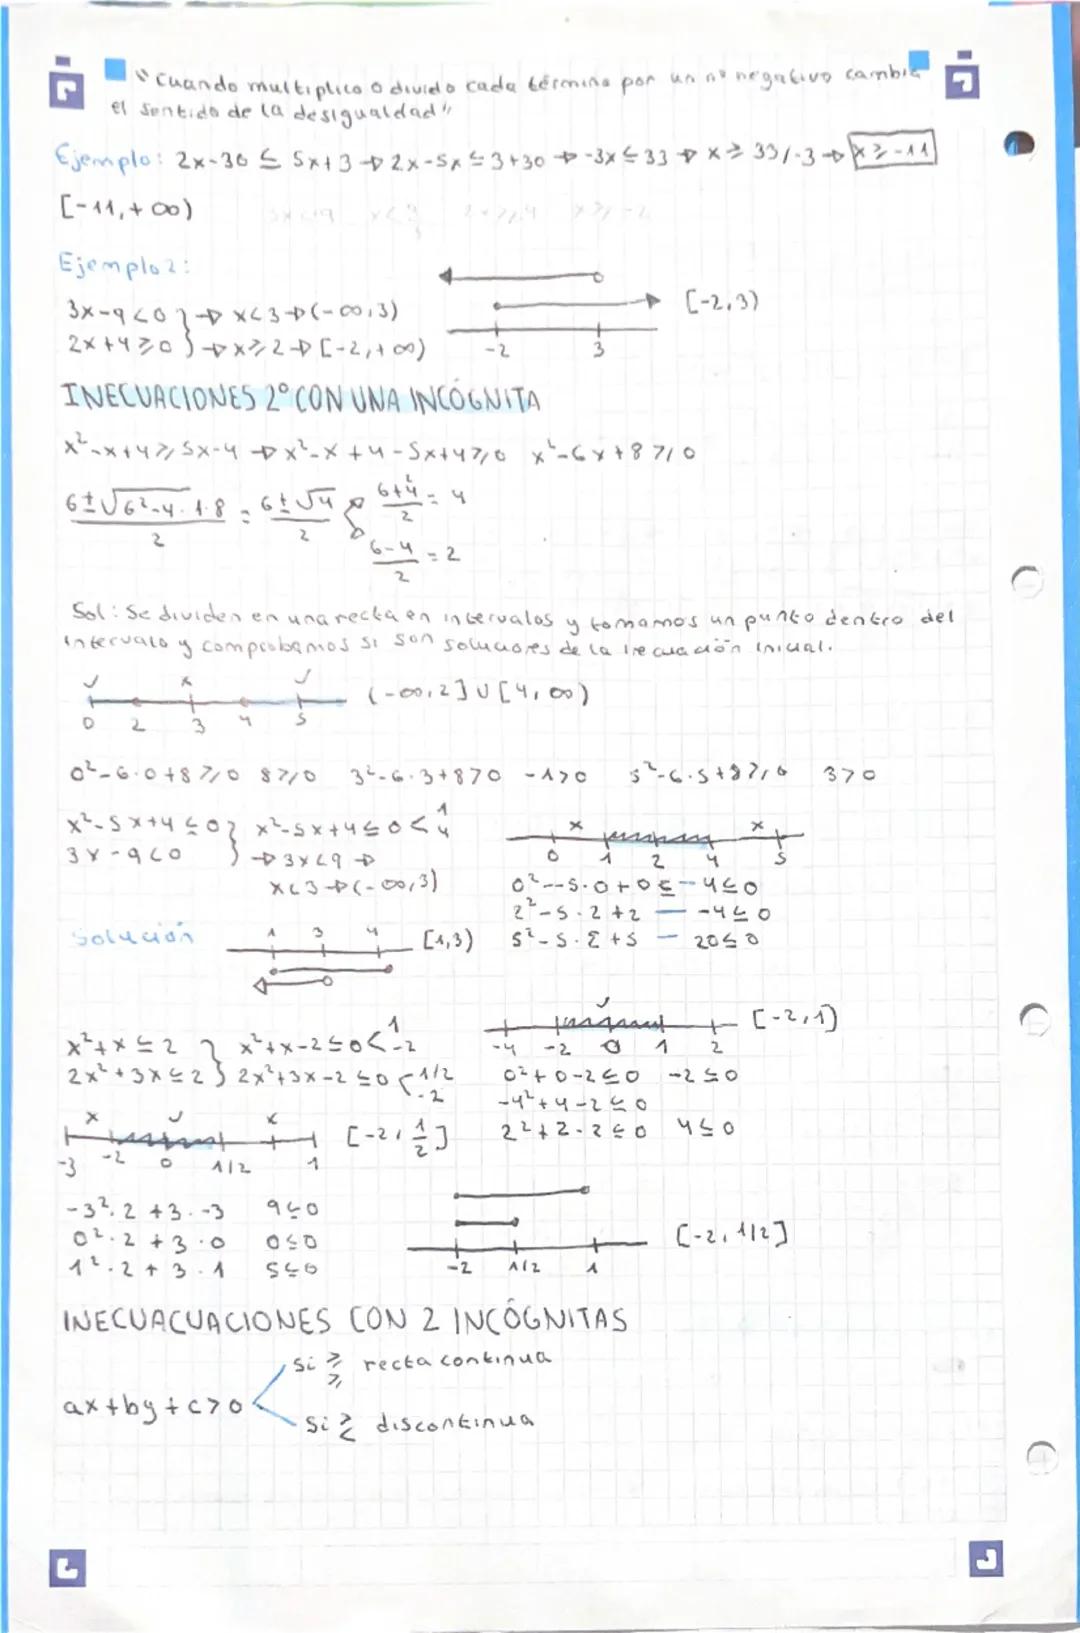 "Cuando multiplico o divido cada término por un nº negativo cambia
el sentido de la desigualdad"
Ejemplo: 2x-30 ≤ 5x+3 → 2x-5x ≤ 3+30 → -3x ≤ 33 → x ≥ 33/-3 → x ≥ -11
[-11,+∞)
Ejemplo 2:
3x-9<0 } → x<3 → (-∞,3)
2x+4≥0 } → x≥2 → [-2,+∞)
-2 3
[-2,3)
INECUACIONES 2º CON UNA INCÓGNITA
x²-x+4≥5x-4 → x²-x+4-5x+4≥0 x²-6x+8≥0
6±√6²-4·1·8 / 2 = 6±√4 / 2
6+4 / 2 = 4
2
6-4 / 2 = 2
Sol: Se dividen en una recta en intervalos y tomamos un punto dentro del
intervalo y comprobamos si son soluciones de la inecuación inicial.
✓ x ✓
0 2 3 4 5
(-∞,2]U[4,∞)
0²-6·0+8≥0 8≥0 3²-6·3+8>0 -1>0 5²-6·5+8≥0 3>0
x²-5x+4≤0 } x²-5x+4≤0 < 1 4
3x-9<0 } → 3x<9 →
x<3 → (-∞,3)
x x
0 1 2 4 5
0²--5·0+0≤ - 4≤0
2²-5·2+2 — -4≤0
5²-5·Σ+5 — 20≤0
Solución
1 3 4
[1,3)
x²+x≤2 } x²+x-2≤0 < 1 -2
2x²+3x≤2 } 2x²+3x-2≤0 < 1/2 -2
✓
-4 -2 0 1 2
[-2,1]
0²+0-2≤0 -2≤0
-4²+4-2≤0
2²+2-2≤0 4≤0
x ✓ x
-3 -2 0 1/2 1
[-2,1/2]
-3²·2+3·-3 9≤0
0²·2+3·0 0≤0
1²·2+3·1 5≤0
-2 1/2 1
[-2,1/2]
INECUACUACIONES CON 2 INCÓGNITAS
ax+by+c>0
si ≥ recta continua
si ≷ discontinua